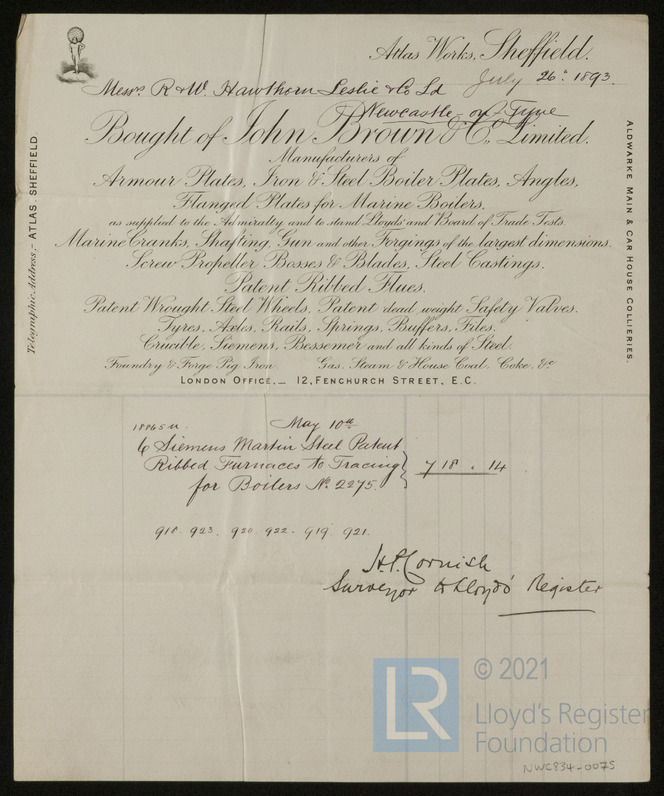 Atlas Works, Sheffield.
July 26th 1893.
Messrs R & W. Hawthorn Leslie & Co Ld
Newcastle on Tyne
Bought of John Brown & Co., Limited.
Manufacturers of
Armour Plates, Iron & Steel Boiler Plates, Angles,
Flanged Plates for Marine Boilers,
as supplied to the Admiralty and to stand Lloyds' and Board of Trade Tests.
Marine Cranks, Shafting, Gun and other Forgings of the largest dimensions.
Screw Propeller Bosses & Blades, Steel Castings.
Patent Ribbed Flues.
Patent Wrought Steel Wheels, Patent dead weight Safety Valves.
Tyres, Axles, Rails, Springs, Buffers, Files.
Crucible, Siemens, Bessemer and all kinds of Steel.
Foundry & Forge Pig Iron. Gas, Steam & House Coal, Coke, &c
LONDON OFFICE,_ 12, FENCHURCH STREET, E.C.
Telegraphic Address,- ATLAS, SHEFFIELD
ALDWARKE MAIN & CAR HOUSE COLLIERIES.
May 10th
6 Siemens Martin Steel Patent
Ribbed Furnaces to Tracing
for Boilers No. 2275.
7 18 . 14
918. 923. 920. 922. 919. 921.
H.P. Cornish
Surveyor to Lloyds' Register
LR
© 2021
Lloyd's Register
Foundation
NWC834-0075